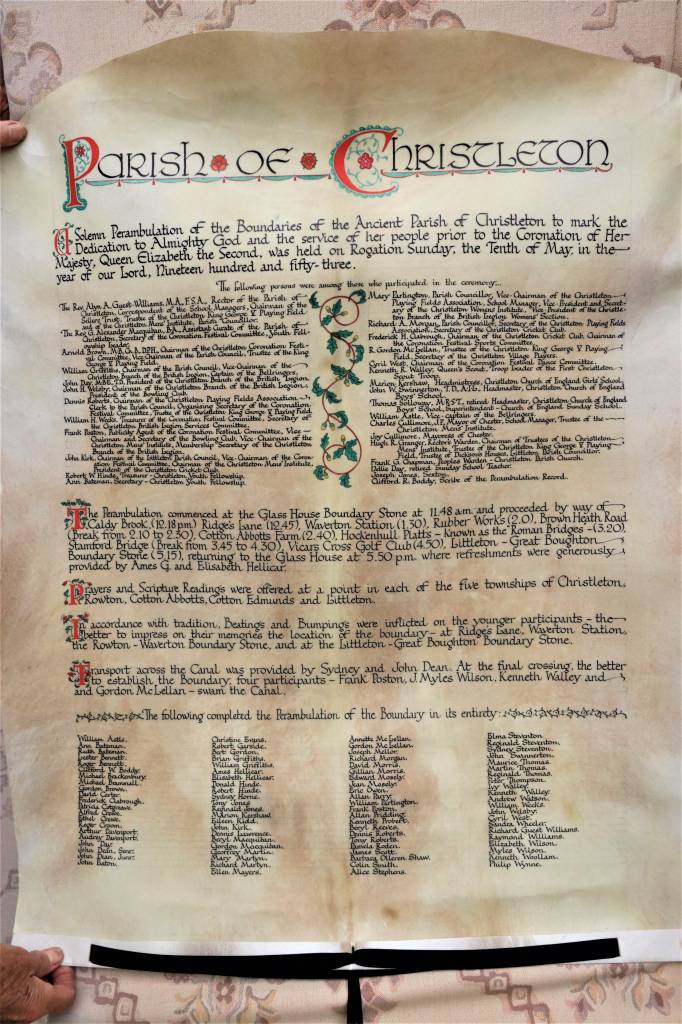 PARISH OF CHRISTLETON
A Solemn Perambulation of the Boundaries of the Ancient Parish of Christleton to mark the
Dedication to Almighty God and the service of her people prior to the Coronation of Her
Majesty, Queen Elizabeth the Second, was held on Rogation Sunday, the Tenth of May, in the
year of our Lord, Nineteen hundred and fifty-three.
The following persons were among those who participated in the ceremony:-
The Rev. Alyn A. Guest-Williams, M.A., F.S.A., Rector of the Parish of
Christleton, Correspondent of the School Managers, Chairman of the
Sillery Trust, Trustee of the Christleton King George V Playing Field
and of the Christleton Mens' Institute, Parish Councillor.
The Rev. G. Alexander Macquiban, B.A., Assistant Curate of the Parish of
Christleton, Secretary of the Coronation Festival Committee, Youth Fell-
owship leader.
Arnold Brown, M.B., G.A., D.P.H., Chairman of the Christleton Coronation Festi-
val Committee, Vice-Chairman of the Parish Council, Trustee of the King
George V Playing Field.
William Griffiths, Chairman of the Parish Council, Vice-Chairman of the
Christleton Branch of the British Legion, Captain of the Bellringers.
John Day, M.B.E., T.D. President of the Christleton Branch of the British Legion.
John H. Welsby, Chairman of the Christleton Branch of the British Legion,
President of the Bowling Club.
Dennis Roberts, Chairman of the Christleton Playing Fields Association,
Clerk to the Parish Council, Organising Secretary of the Coronation
Festival Committee, Trustee of the Christleton King George V Playing Field.
William H. Weeks, Treasurer of the Coronation Festival Committee, Secretary of
the Christleton British Legion Services Committee.
Frank Poston, Publicity Agent of the Coronation Festival Committee, Vice-
Chairman and Secretary of the Bowling Club, Vice-Chairman of the
Christleton Mens' Institute, Membership Secretary of the Christleton
Branch of the British Legion.
John Kirk, Chairman of the Littleton Parish Council, Vice-Chairman of the Coron-
ation Festival Committee, Chairman of the Christleton Mens' Institute,
President of the Christleton Cricket Club.
Robert W. Hinde, Treasurer - Christleton Youth Fellowship.
Ann Bateman, Secretary - Christleton Youth Fellowship.
Mary Partington, Parish Councillor, Vice-Chairman of the Christleton
Playing Fields Association, School Manager, Vice-President and Secret-
ary of the Christleton Womens' Institute, Vice President of the Christle-
ton Branch of the British Legion Womens' Section.
Richard A. Morgan, Parish Councillor, Secretary of the Christleton Playing Fields
Association, Secretary of the Christleton Cricket Club.
Frederick H. Clabrough, Chairman of the Christleton Cricket Club, Chairman of
the Coronation Festival Sports Committee.
R. Gordon McLellan, Trustee of the Christleton King George V Playing
Field, Secretary of the Christleton Village Players.
Cyril West, Chairman of the Coronation Festival Dance Committee.
Kenneth R. Walley, Queen's Scout, Troop Leader of the First Christleton
Scout Troop.
Marion Kershaw, Headmistress, Christleton Church of England Girls' School.
John W. Swinnerton, T.D., A.I.E., Headmaster, Christleton Church of England
Boys' School.
Thomas Solloway, M.R.S.T., retired Headmaster, Christleton Church of England
Boys' School, Superintendant - Church of England Sunday School.
William Astle, Vice-captain of the Bellringers.
Charles Cullimore, J.P., Mayor of Chester, School Manager, Trustee of the
Christleton Mens' Institute.
Joy Cullimore, Mayoress of Chester.
Hugh R. Granger, Rector's Warden, Chairman of Trustees of the Christleton
Mens' Institute, Trustee of the Christleton King George V Playing
Field, Trustee of Dicksons Houses, Littleton Parish Councillor.
Frank G. Chapman, Peoples Warden - Christleton Parish Church.
Delia Day, retired Sunday School Teacher.
Joseph Jones, Sexton.
Clifford R. Boddy, Scribe of the Perambulation Record.
The Perambulation commenced at the Glass House Boundary Stone at 11.48 a.m. and proceeded by way of
Caldy Brook, (12.18 pm) Ridge's Lane (12.45), Waverton Station (1.30), Rubber Works (2.0), Brown Heath Road
(Break from 2.10 to 2.30), Cotton Abbotts Farm (2.40), Hockenhull Platts - known as the Roman Bridges - (3.20)
Stamford Bridge (Break from 3.45 to 4.30), Vicars Cross Golf Club (4.50), Littleton - Great Boughton
Boundary Stone (5.15), returning to the Glass House at 5.50 p.m. where refreshments were generously
provided by Ames G. and Elisabeth Hellicar.
Prayers and Scripture Readings were offered at a point in each of the five townships of Christleton,
Rowton, Cotton Abbotts, Cotton Edmunds and Littleton.
In accordance with tradition, Beatings and Bumpings were inflicted on the younger participants - the
better to impress on their memories the location of the boundary - at Ridges Lane, Waverton Station,
the Rowton - Waverton Boundary Stone, and at the Littleton - Great Boughton Boundary Stone.
Transport across the Canal was provided by Sydney and John Dean. At the final crossing, the better
to establish the Boundary, four participants - Frank Poston, J. Myles Wilson, Kenneth Walley and
and Gordon McLellan - swam the Canal.
The following completed the Perambulation of the Boundary in its entirety:
William Astle.
Ann Bateman.
Ruth Bateman.
Lester Bennett.
Roger Bennett.
Clifford W. Boddy.
Michael Brackenbury.
Michael Bramwell.
Gordon Brown.
David Carter.
Frederick Clabrough.
Patricia Cotgreave.
Alfred Crowe.
Ethel Crowe.
Roger Croom.
Arthur Davenport.
Audrey Davenport.
John Day.
John Dean, Senr.
John Dean, Junr.
John Eaton.
Christine Evans.
Robert Garside.
Bert Gordon.
Brian Griffiths.
William Griffiths.
Ames Hellicar.
Elisabeth Hellicar.
Donald Hinde.
Robert Hinde.
Sydney Horne.
Tony Jones.
Reginald Jones.
Marion Kershaw.
Eileen Kidd.
John Kirk.
Dennis Lawrence.
Beryl Macquiban.
Gordon Macquiban.
Geoffrey Martin.
Mary Martyn.
Richard Martyn.
Ellen Mayers.
Annette McLellan.
Gordon McLellan.
Joseph Mellor.
Richard Morgan.
David Morris.
Gillian Morris.
Edward Mosely.
Jean Mosely.
Eric Owen.
Allan Parry.
William Partington.
Frank Poston.
Allan Pridding.
Kenneth Probert.
Beryl Reeves.
Dennis Roberts.
Tony Roberts.
Pamela Roden.
James Scott.
Barbara Olleren Shaw.
Colin Smith.
Alice Stephens.
Elma Steventon
Reginald Steventon.
Sydney Steventon.
John Swinnerton.
Maurice Thomas.
Martin Thomas.
Reginald Thomas.
Peter Thompson.
Ivy Walley.
Kenneth Walley.
Andrew Watson.
William Weeks.
John Welsby.
Cyril West.
Sandra Wheeler.
Richard Guest Williams.
Raymond Williams.
Elizabeth Wilson.
Myles Wilson.
Kenneth Woollam.
Philip Wynne.